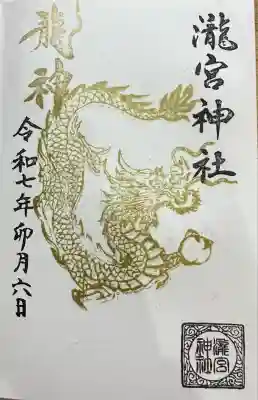 瀧宮神社
龍神
令和七年卯月六日
瀧宮
神社